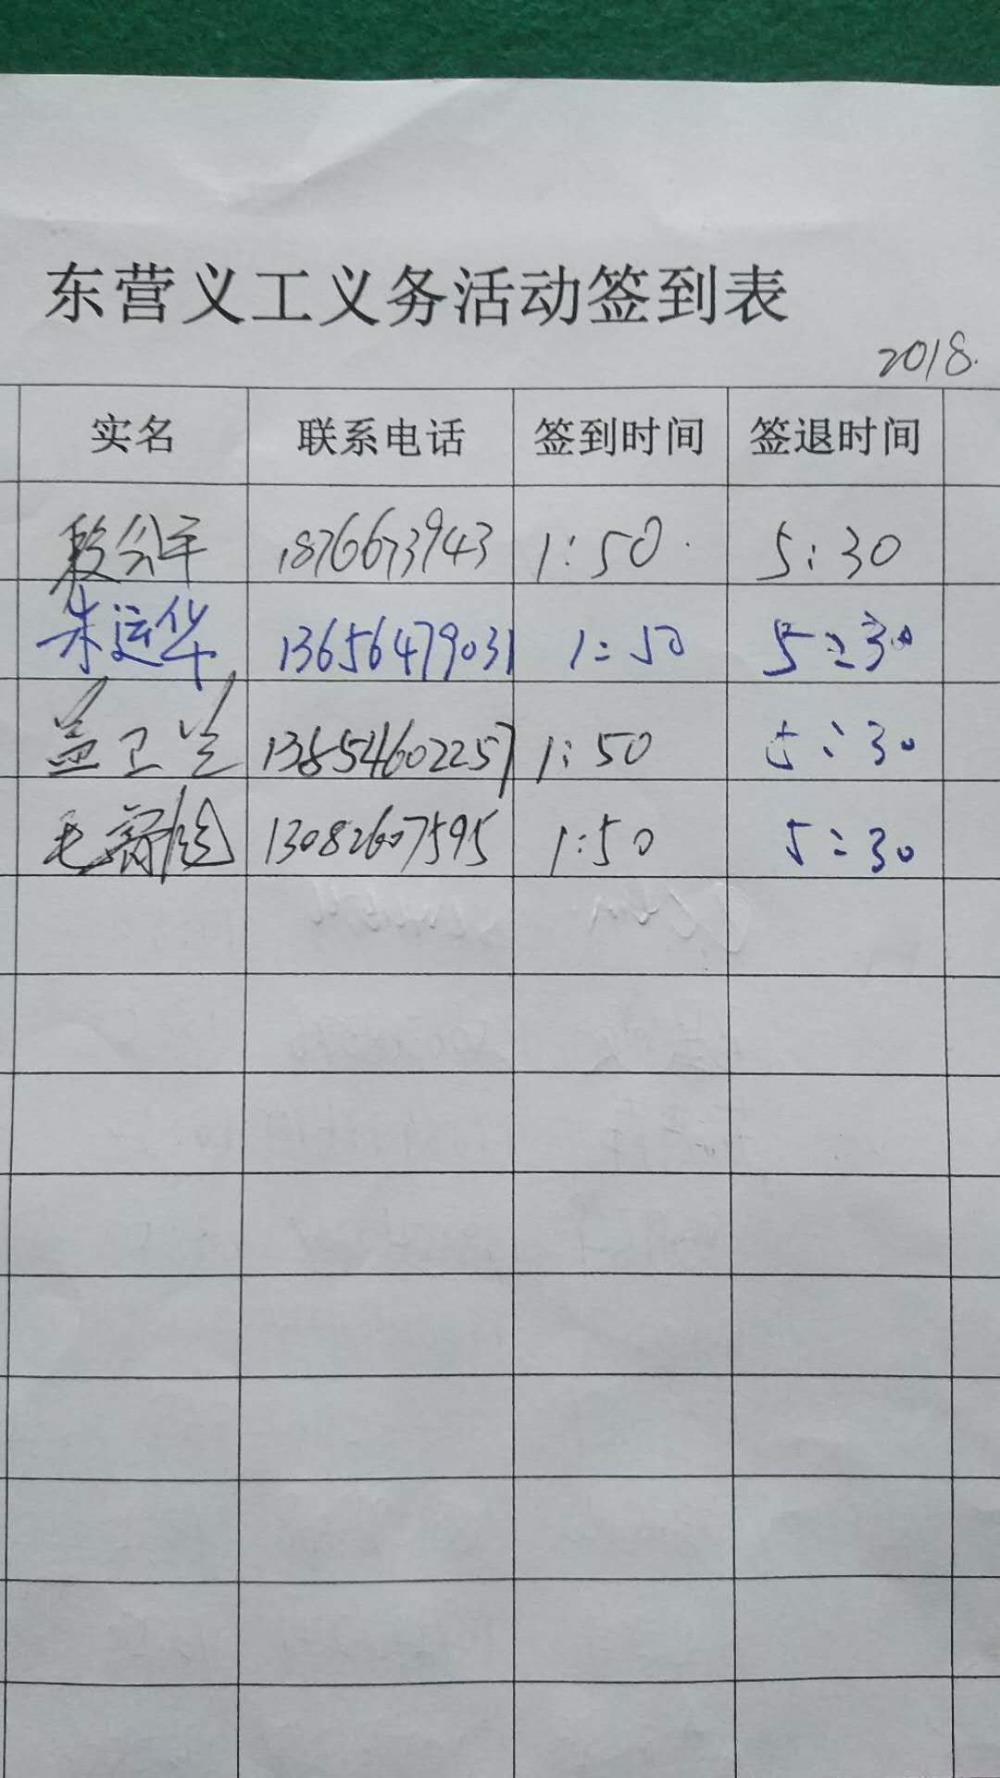 东营义工义务活动签到表
2018.
实名 联系电话 签到时间 签退时间
1:50 5:30
朱运华 13656479031 1:50 5:30
盖卫兰 13854602257 1:50 5:30
毛 13082607595 1:50 5:30